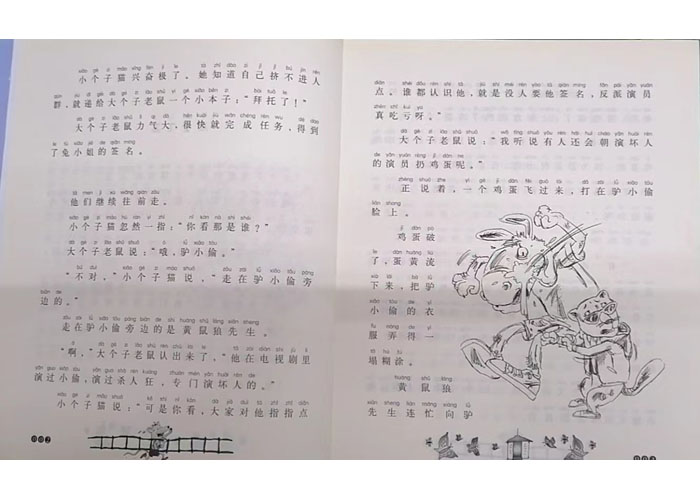 小个子猫兴奋极了。她知道自己挤不进人
群，就递给大个子老鼠一个小本子：“拜托了！”
大个子老鼠力气大，很快就完成任务，得到
了兔小姐的签名。
他们继续往前走。
小个子猫忽然一指：“你看那是谁？”
大个子老鼠说：“哦，驴小偷。”
“不对，”小个子猫说，“走在驴小偷旁
边的。”
走在驴小偷旁边的是黄鼠狼先生。
“啊，”大个子老鼠认出来了，“他在电视剧里
演过小偷，演过杀人狂，专门演坏人的。”
小个子猫说：“可是你看，大家对他指指点
点。谁都认识他，就是没人要他签名，反派演员
真吃亏呀。”
大个子老鼠说：“我听说有人还会朝演坏人
的演员扔鸡蛋呢。”
正说着，一个鸡蛋飞过来，打在驴小偷
脸上。
鸡蛋破
了，蛋黄流
下来，把驴
小偷的衣
服弄得一
塌糊涂。
黄鼠狼
先生连忙向驴